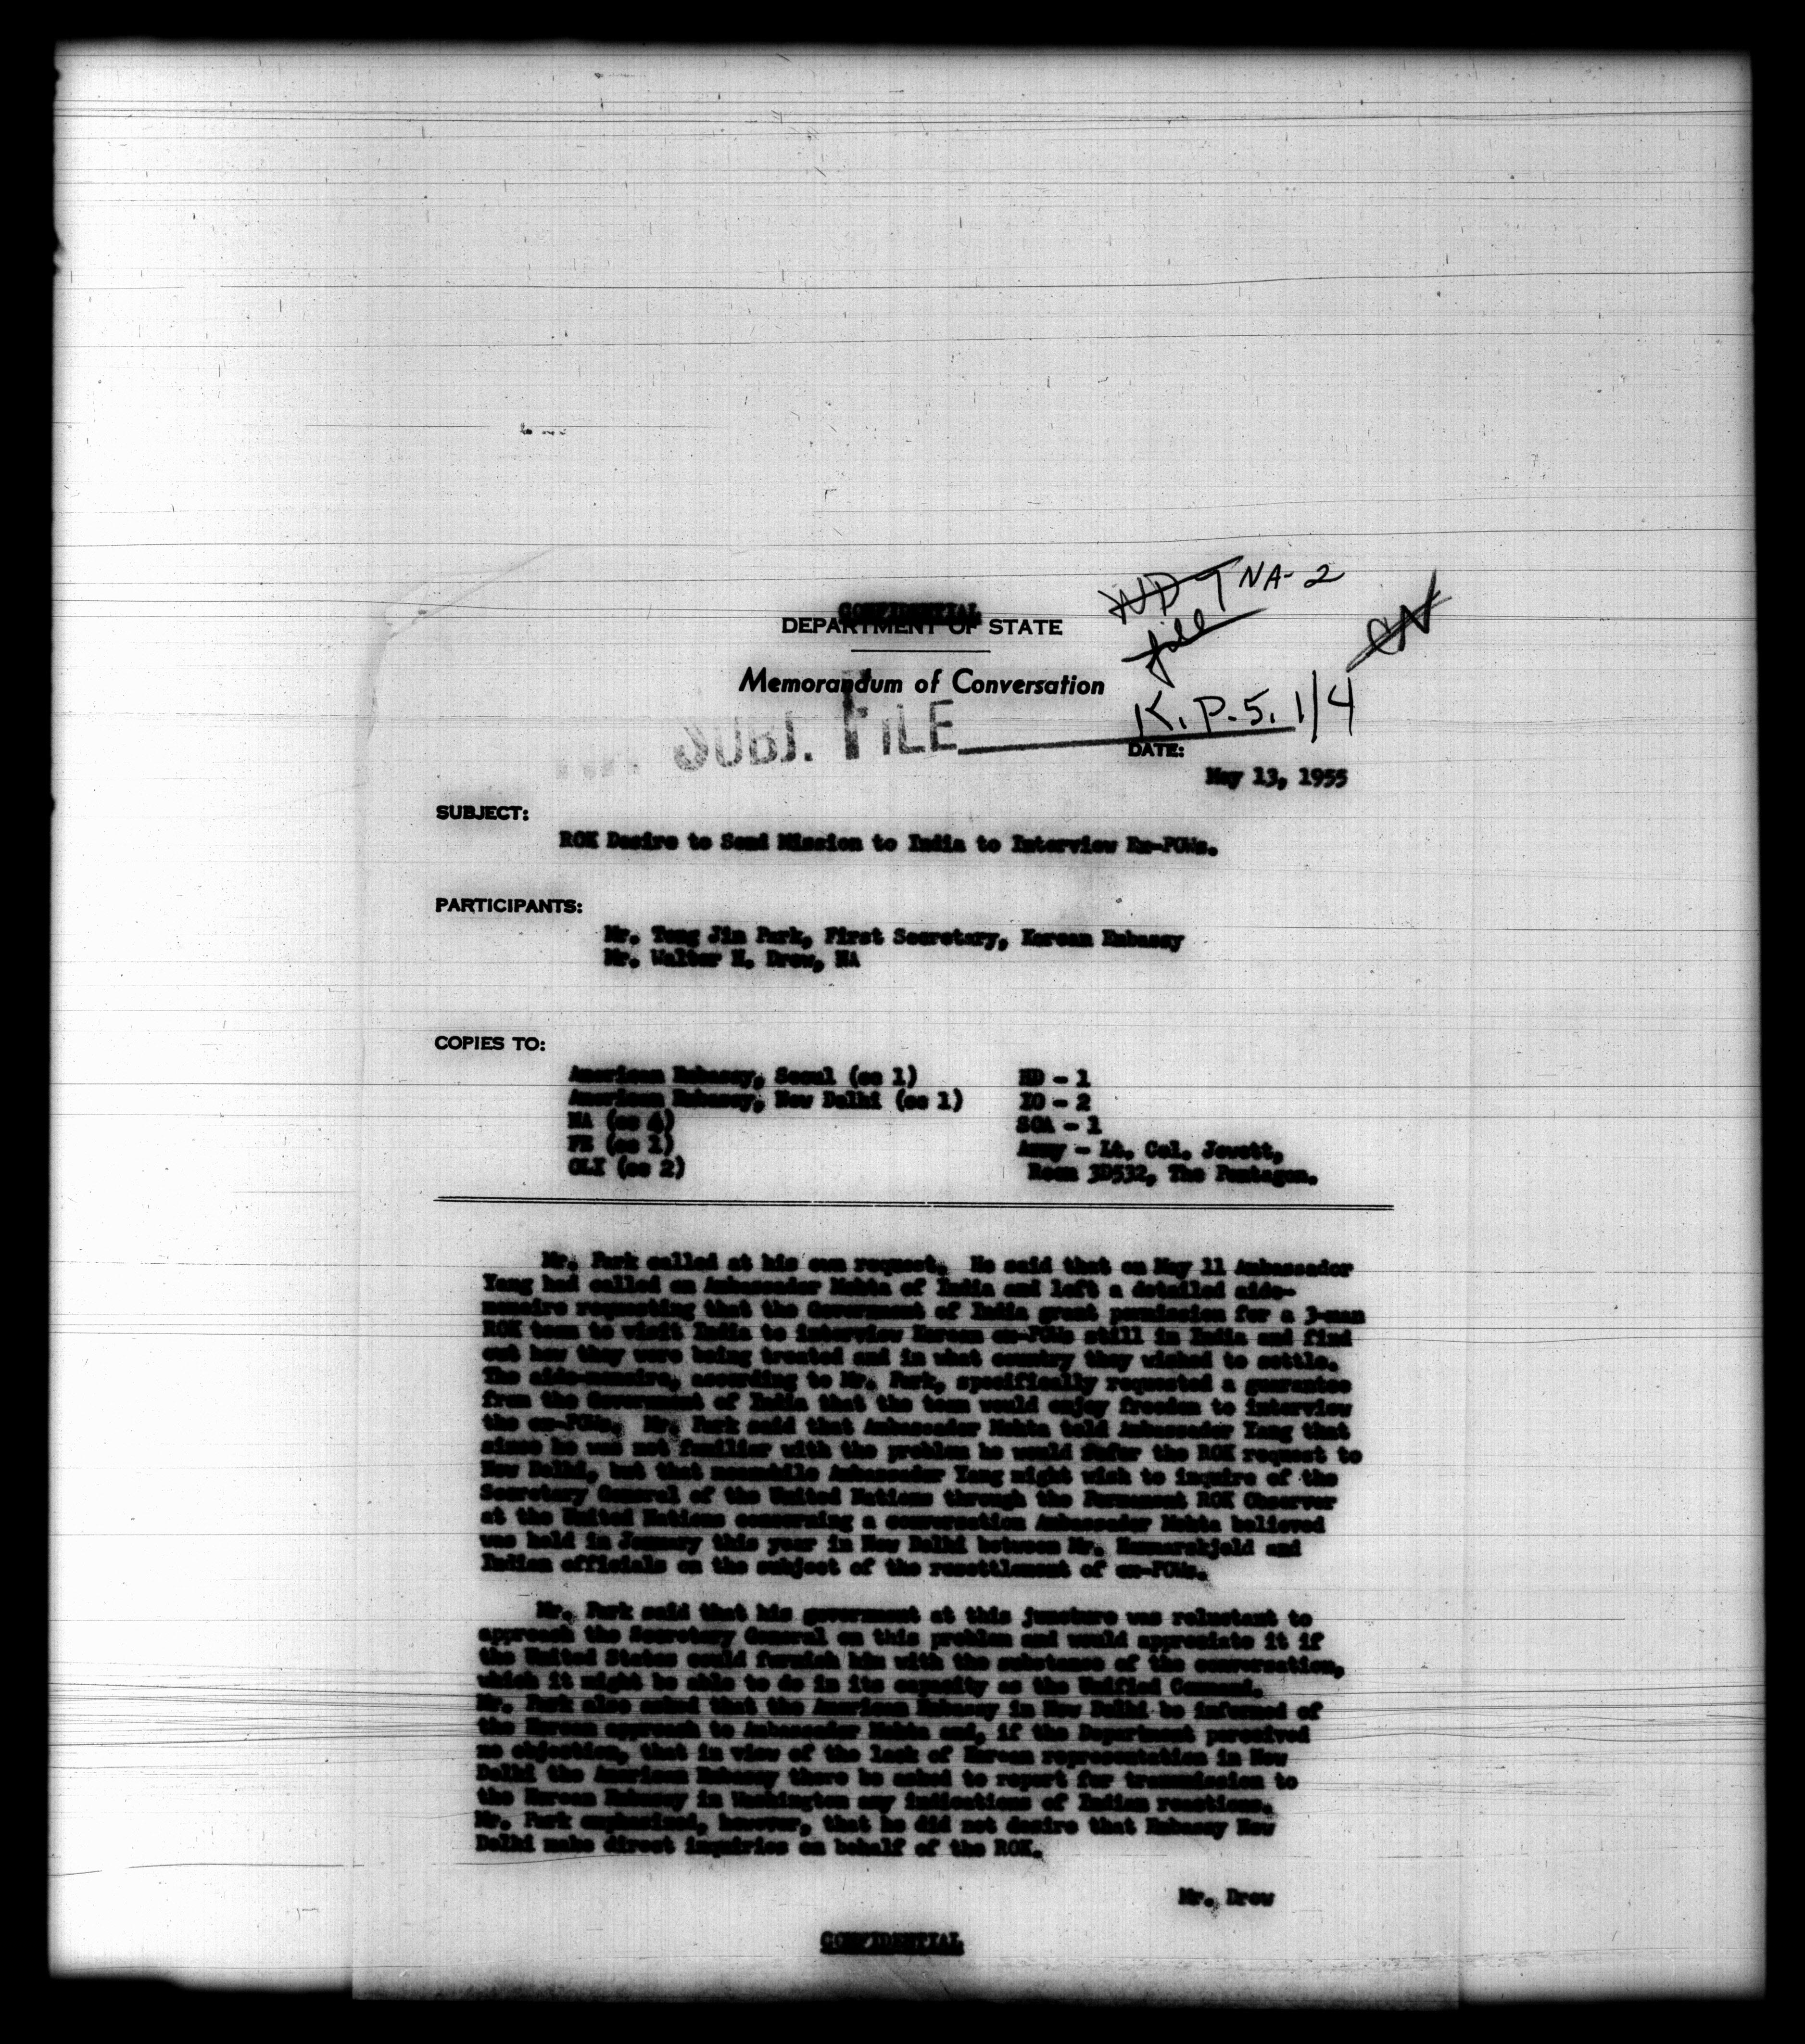 CONFIDENTIAL
DEPARTMENT OF STATE
NA-2
file
Memorandum of Conversation
K.P.5.1/4
SUBJ. FILE
DATE:
May 13, 1955
SUBJECT:
ROK Desire to Send Mission to India to Interview Ex-POWs.
PARTICIPANTS:
Mr. Tong Jin Park, First Secretary, Korean Embassy
Mr. Walter N. Drew, NA
COPIES TO:
American Embassy, Seoul (cc 1)
American Embassy, New Delhi (cc 1)
NA (cc 4)
FE (cc 1)
OLI (cc 2)
ED - 1
IO - 2
SOA - 1
Army - Lt. Col. Jewett,
Room 3D532, The Pentagon.
Mr. Park called at his own request. He said that on May 11 Ambassador
Yang had called on Ambassador Mehta of India and left a detailed aide-
memoire requesting that the Government of India grant permission for a 3-man
ROK team to visit India to interview Korean ex-POWs still in India and find
out how they were being treated and in what country they wished to settle.
The aide-memoire, according to Mr. Park, specifically requested a guarantee
from the Government of India that the team would enjoy freedom to interview
the ex-POWs. Mr. Park said that Ambassador Mehta told Ambassador Yang that
since he was not familiar with the problem he would refer the ROK request to
New Delhi, but that meanwhile Ambassador Yang might wish to inquire of the
Secretary General of the United Nations through the Permanent ROK Observer
at the United Nations concerning a conversation Ambassador Mehta believed
was held in January this year in New Delhi between Mr. Hammarskjold and
Indian officials on the subject of the resettlement of ex-POWs.
Mr. Park said that his government at this juncture was reluctant to
approach the Secretary General on this problem and would appreciate it if
the United States could furnish him with the substance of the conversation,
which it might be able to do in its capacity as the Unified Command.
Mr. Park also asked that the American Embassy in New Delhi be informed of
the Korean approach to Ambassador Mehta and, if the Department perceived
no objection, that in view of the lack of Korean representation in New
Delhi the American Embassy there be asked to report for transmission to
the Korean Embassy in Washington any indications of Indian reactions.
Mr. Park emphasized, however, that he did not desire that Embassy New
Delhi make direct inquiries on behalf of the ROK.
Mr. Drew
CONFIDENTIAL